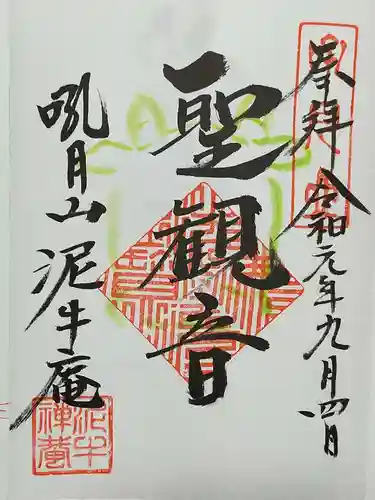 奉拝
令和元年九月四日
聖觀音
吼月山泥牛庵
泥牛
禅菴